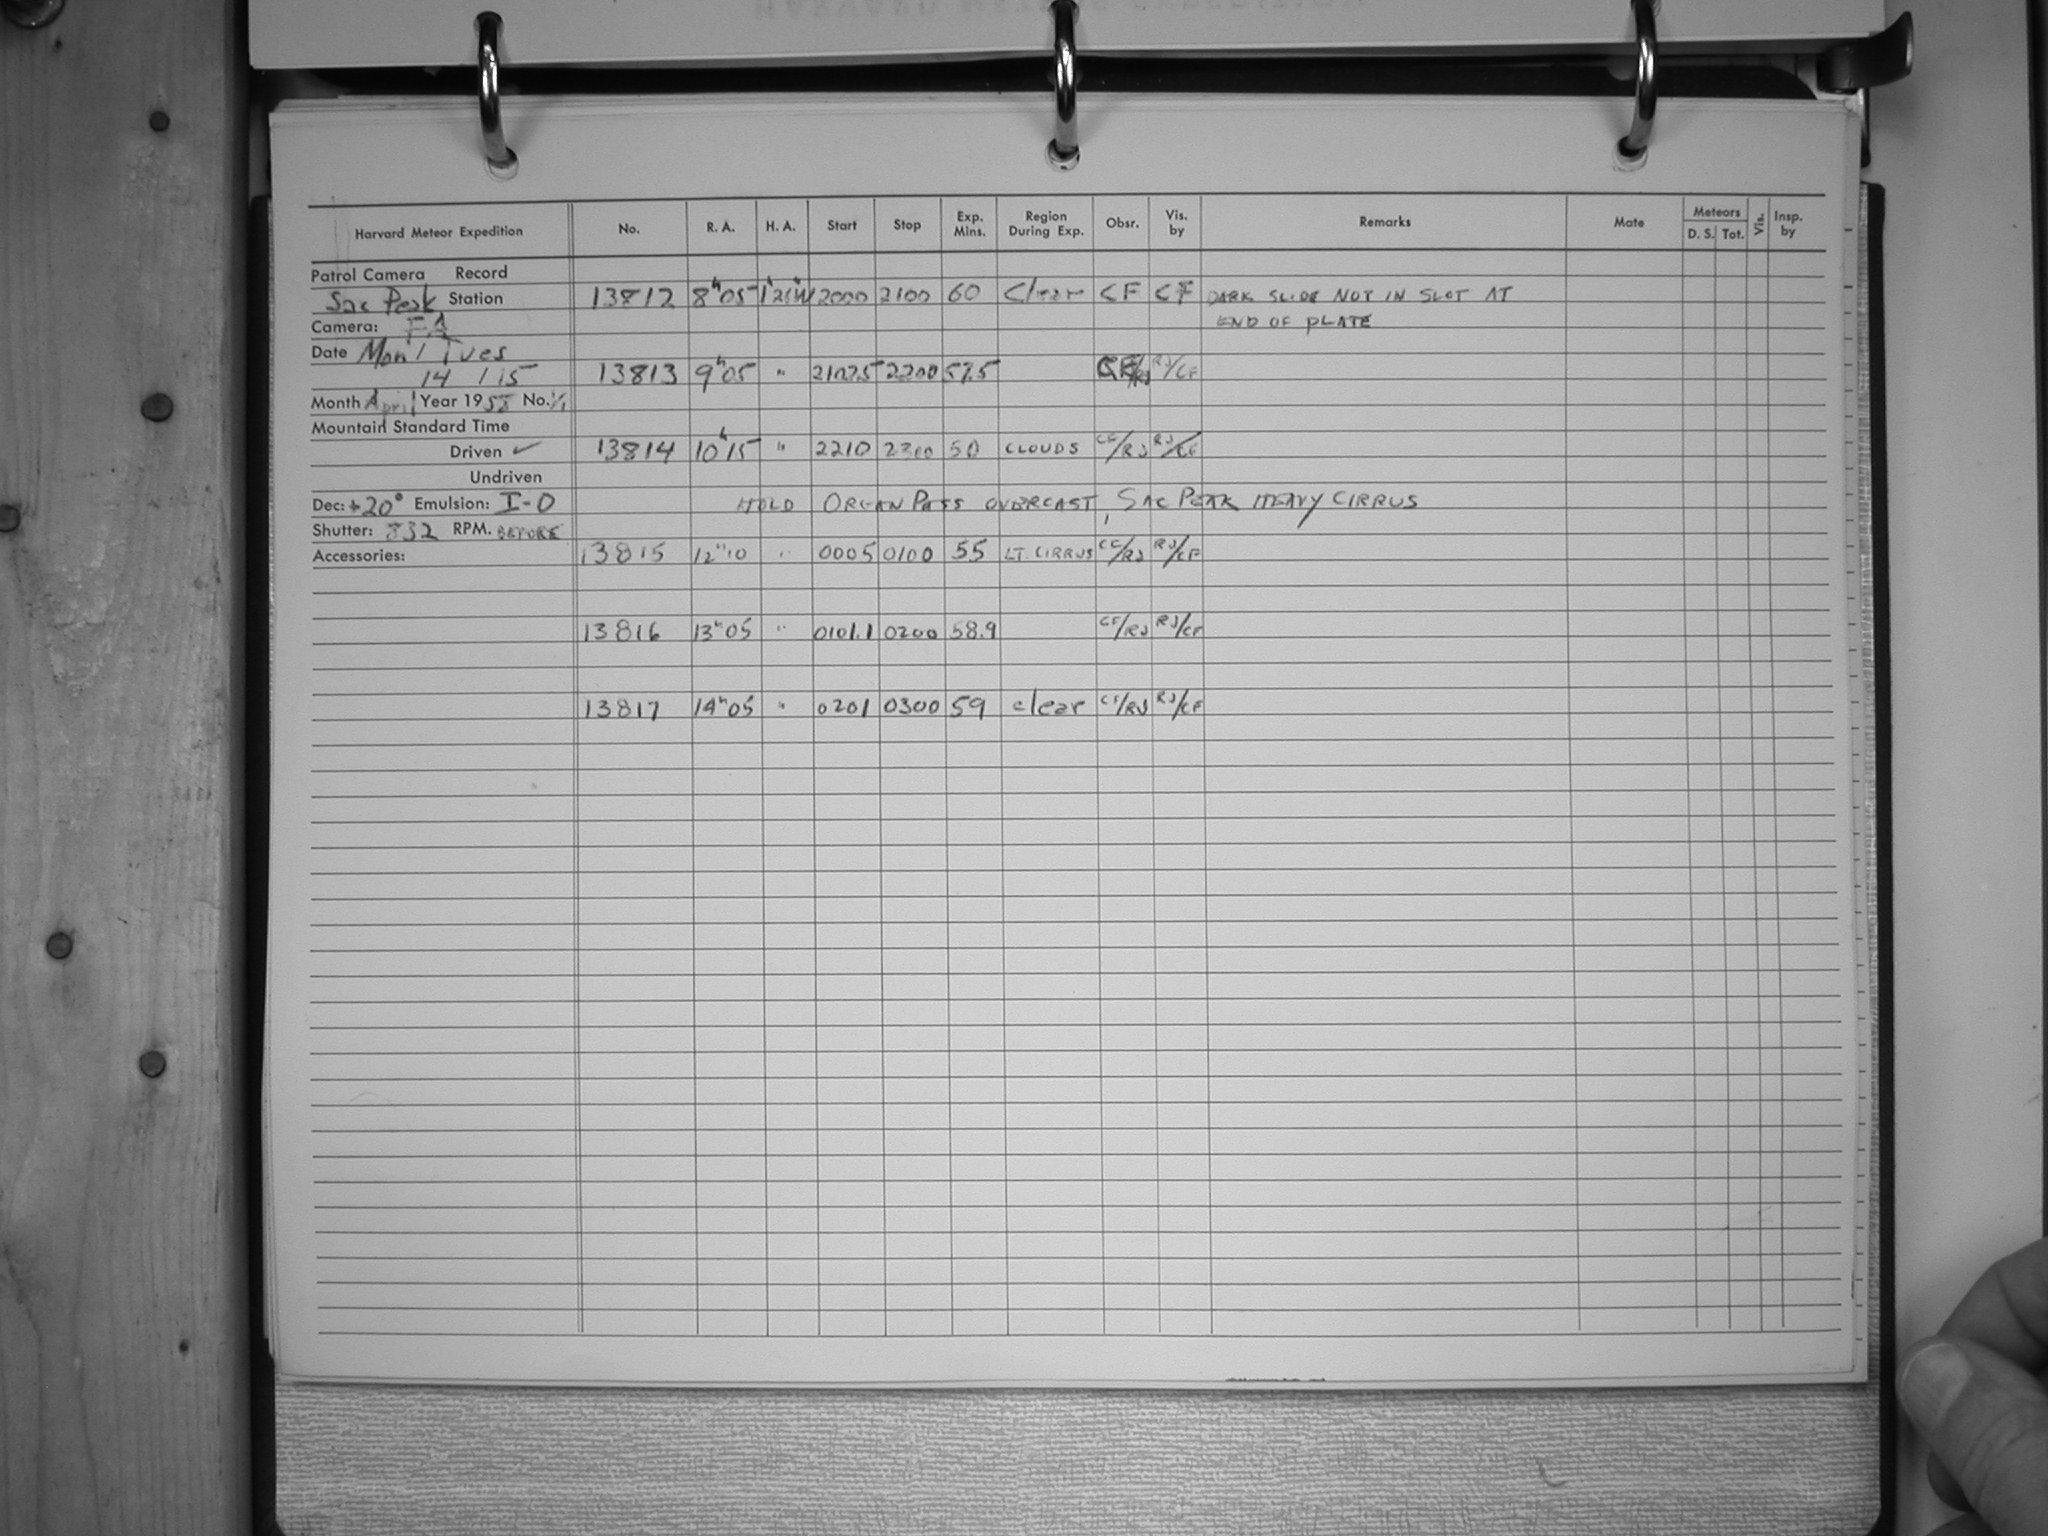 Harvard Meteor Expedition No. R. A. H. A. Start Stop Exp. Mins. Region During Exp. Obsr. Vis. by Remarks Mate Meteors D. S. Tot. Vis. Insp. by
Patrol Camera Record
Sac Peak Station 13812 8h05 2000 2100 60 Clear CF CF DARK SLIDE NOT IN SLOT AT
Camera: END OF PLATE
Date Mon / Tues
14 / 15 13813 9h05 " 2102.5 2200 57.5 RJ/CF
Month April Year 1958 No. 1/1
Mountain Standard Time
Driven ✓ 13814 10h15 " 2210 2300 50 CLOUDS CF/RJ RJ/CF
Undriven
Dec: +20° Emulsion: I-O HOLD ORGAN PASS OVERCAST, SAC PEAK HEAVY CIRRUS
Shutter: 832 RPM. BEFORE
Accessories: 13815 12h10 " 0005 0100 55 LT. CIRRUS CF/RJ RJ/CF
13816 13h05 " 0101.1 0200 58.9 CF/RJ RJ/CF
13817 14h05 " 0201 0300 59 clear CF/RJ RJ/CF